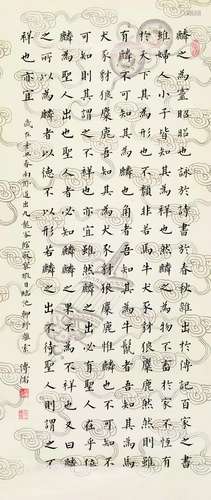 麟之為靈昭昭也詠於詩書於春秋雜出於傳記百家之書
雖婦人小子皆知其為祥也然麟之為物不畜於家不恆有
於天下其為形也不類非若馬牛犬豕豺狼麋鹿然然則雖
有麟不可知其為麟也角者吾知其為牛鬣者吾知其為馬
犬豕豺狼麋鹿吾知其為犬豕豺狼麋鹿惟麟也不可知不
可知則其謂之不祥也亦宜雖然麟之出必有聖人在乎位
麟為聖人出也聖人者必知麟麟之果不為不祥也又曰麟
之所以為麟者以德不以形若麟之出不待聖人則謂之不
祥也亦宜
道出九龍客館 暇日臨池 溥儒